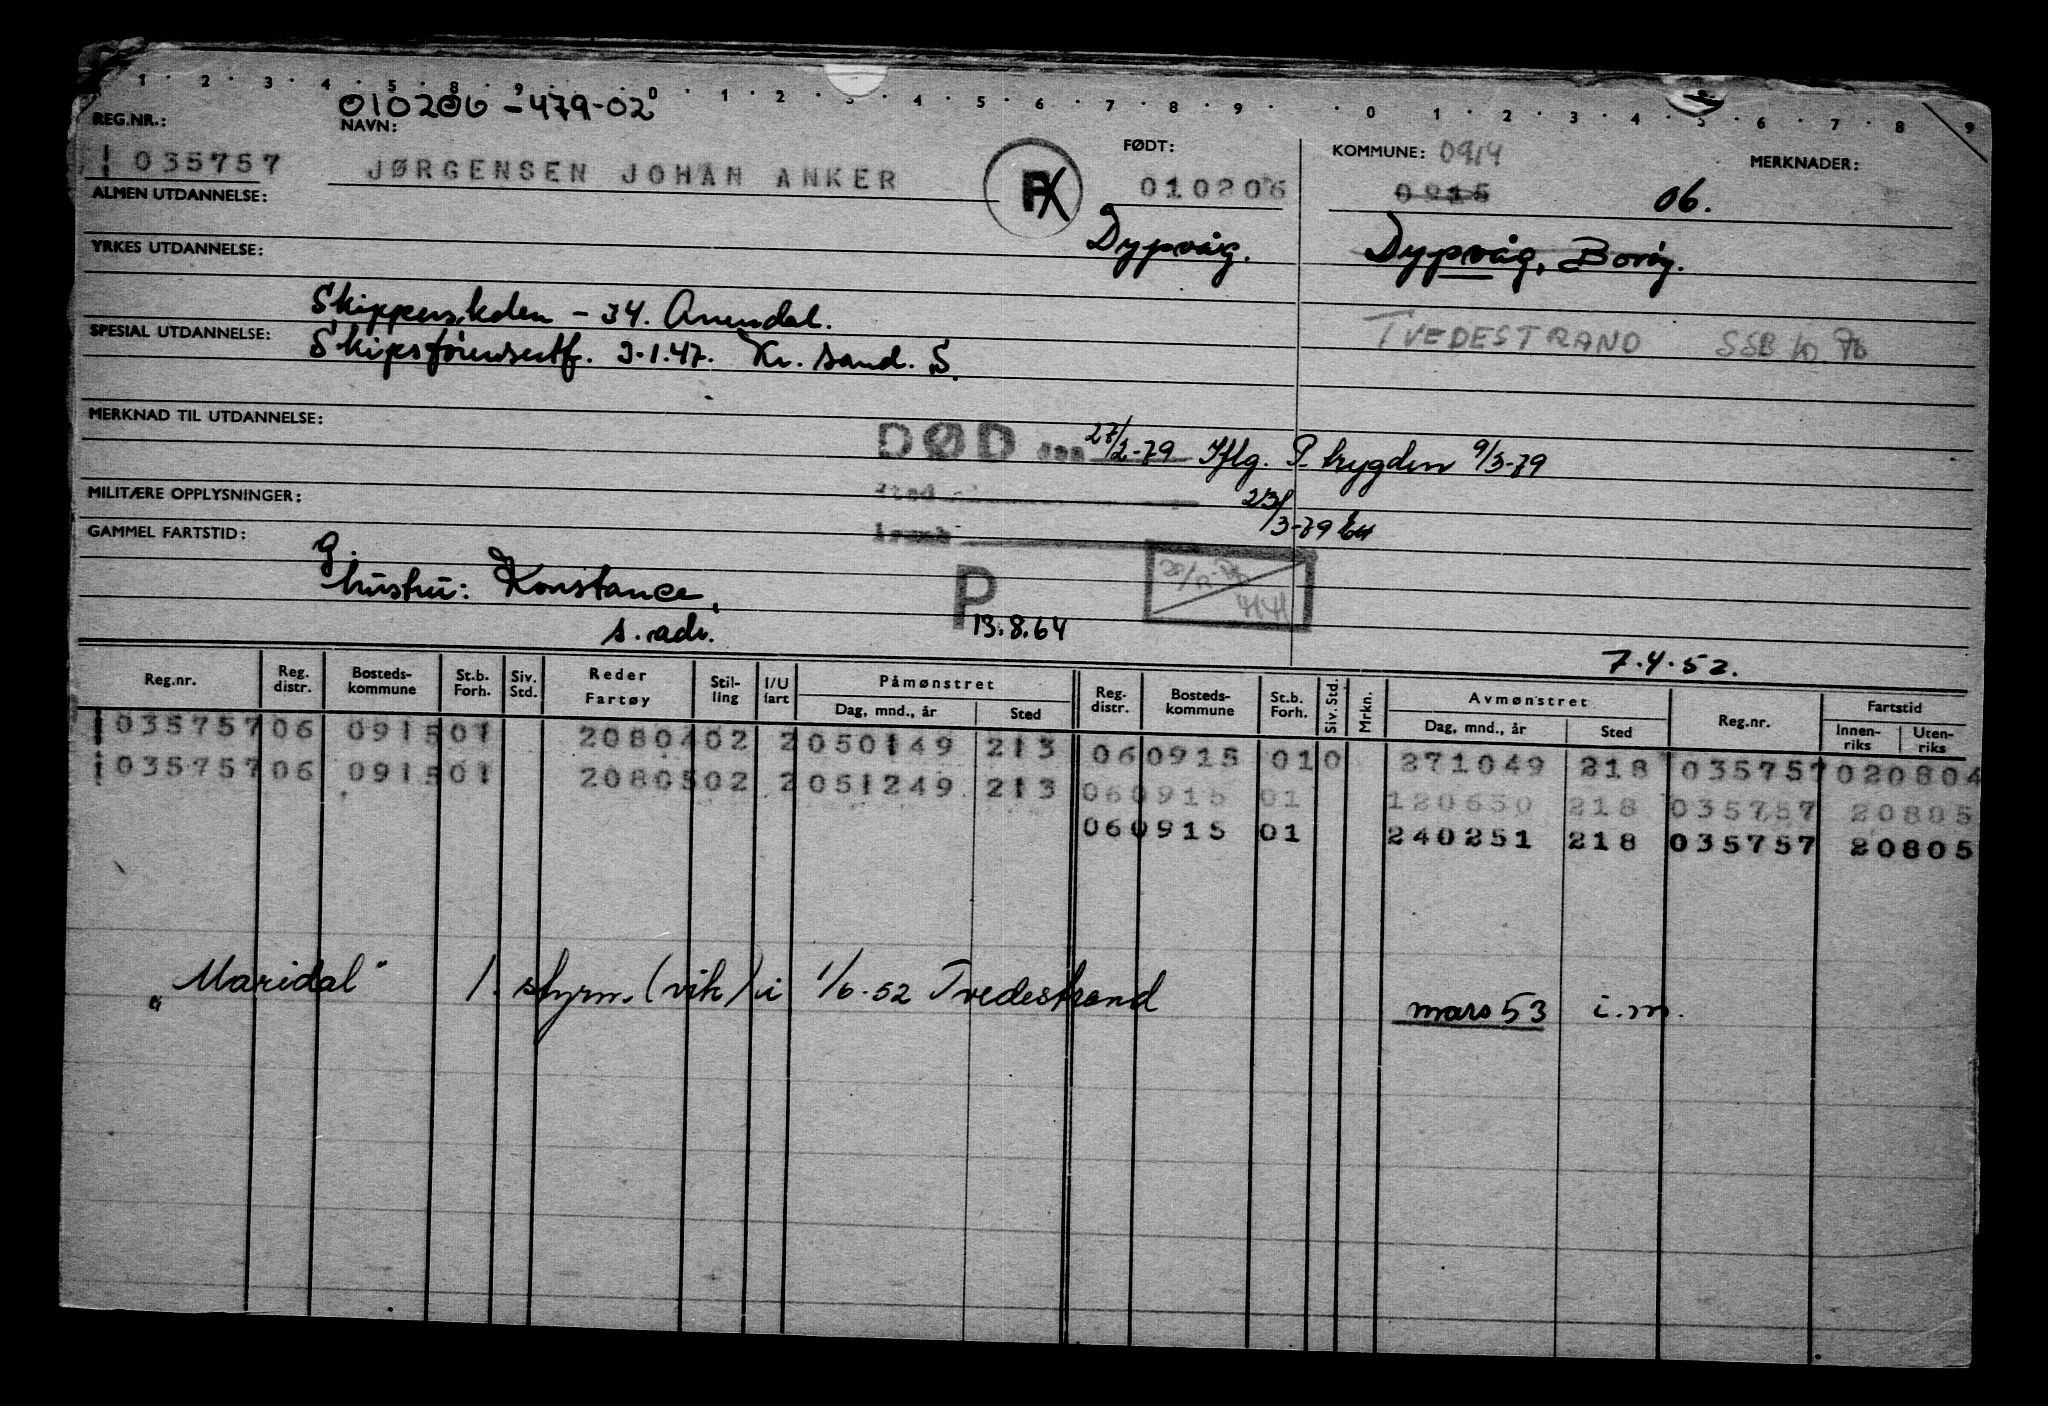 1 · 2 · 3 · 4 · 5 · 8 · 9 · 0 · 1 · 2 · 3 · 4 · 5 · 6 · 7 · 8 · 9 · 0 · 1 · 2 · 3 · 4 · 5 · 6 · 7 · 8 · 9
010206-479-02
REG.NR.: NAVN: FØDT: KOMMUNE: 0914 MERKNADER:
035757 JØRGENSEN JOHAN ANKER 010206 0915 06.
ALMEN UTDANNELSE:
Dypvåg. Dypvåg, Borøy.
YRKES UTDANNELSE:
Skipperskolen - 34. Arendal. TVEDESTRAND SSB 10.76
SPESIAL UTDANNELSE: Skipsførersertf. 3.1.47. Kr. sand. S.
MERKNAD TIL UTDANNELSE:
DØD den 27/2-79 Iflg. P. trygden 9/3-79
MILITÆRE OPPLYSNINGER: sted 23/3-79
GAMMEL FARTSTID:
g.
hustru: Konstance, P
s. adr. 13.8.64
7.4.52.
Reg.nr. Reg. distr. Bosteds-kommune St.b. Forh. Siv. Std. Reder Fartøy Stil-ling I/U fart Påmønstret Dag, mnd., år Sted Reg. distr. Bosteds-kommune St.b. Forh. Siv. Std. Mrkn. Avmønstret Dag, mnd., år Sted Reg.nr. Fartstid Innen-riks Uten-riks
035757 06 0915 01 20804 02 2 050149 213 06 0915 01 0 271049 218 035757 020804
035757 06 0915 01 20805 02 2 051249 213 06 0915 01 120650 218 035757 20805
06 0915 01 240251 218 035757 20805
„Maridal" 1. styrm. (vik) i 1/6.52 Tvedestrand mars 53 i.m.